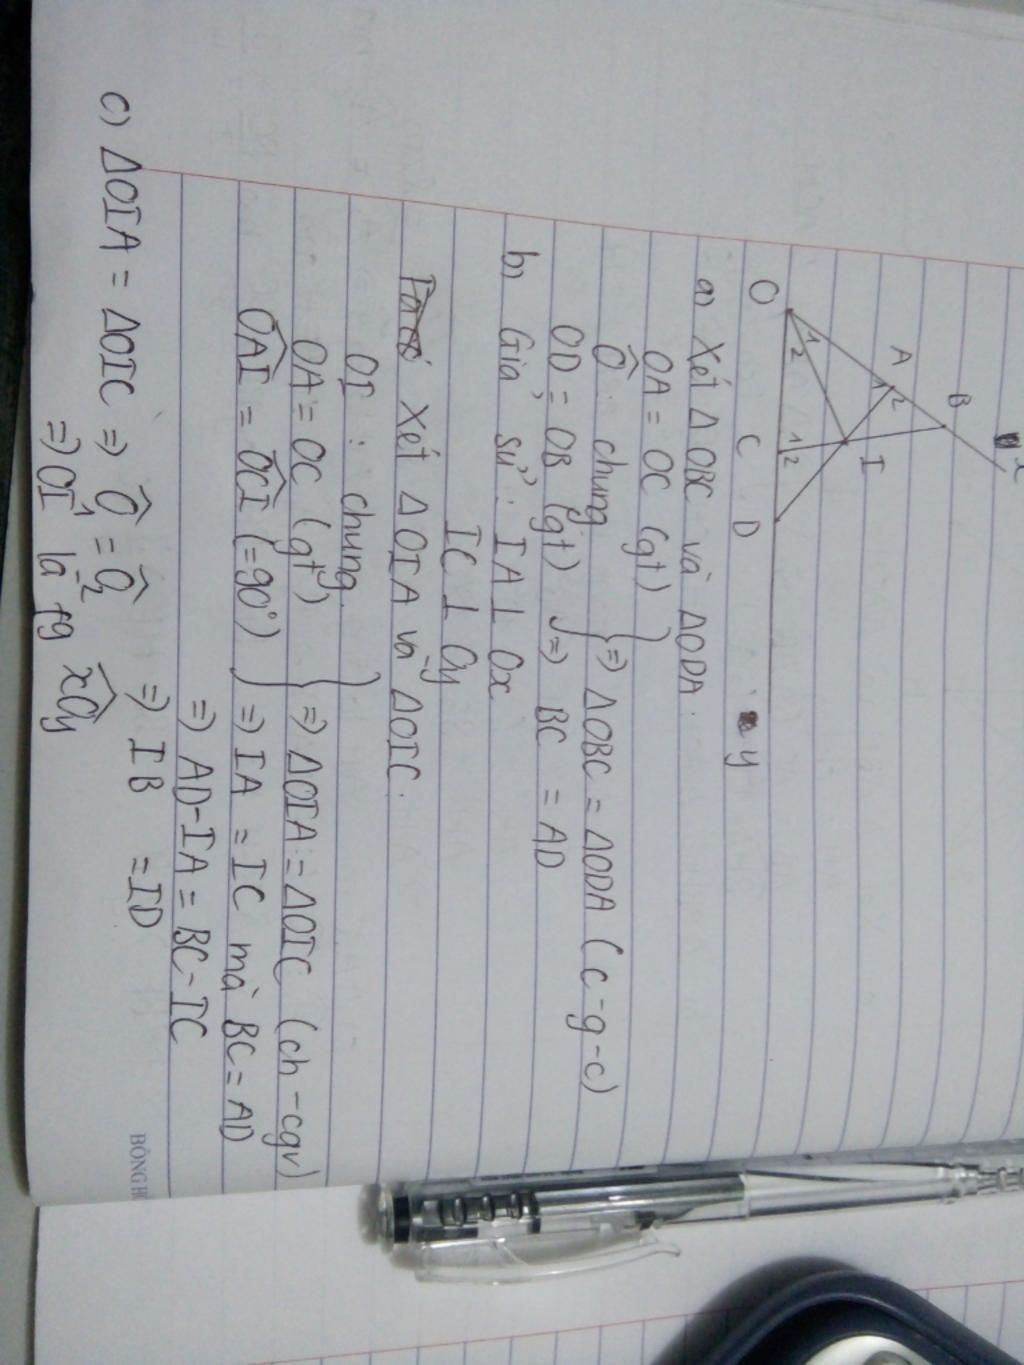 x
B
A
I
O
1
2
1
2
1
2
C
D
y
a) Xét ΔOBC và ΔODA.
OA = OC (gt)
Ô: chung
OD = OB (gt)
=> ΔOBC = ΔODA (c-g-c)
=> BC = AD
b) Giả sử: IA ⊥ Ox
IC ⊥ Oy
Xét ΔOIA và ΔOIC.
OI: chung.
OA = OC (gt)
OAI = OCI (=90°)
=> ΔOIA = ΔOIC (ch-cgv)
=> IA = IC mà BC = AD
=> AD-IA = BC-IC
=> IB = ID
c) ΔOIA = ΔOIC => Ô1 = Ô2
=> OI là fg xOy